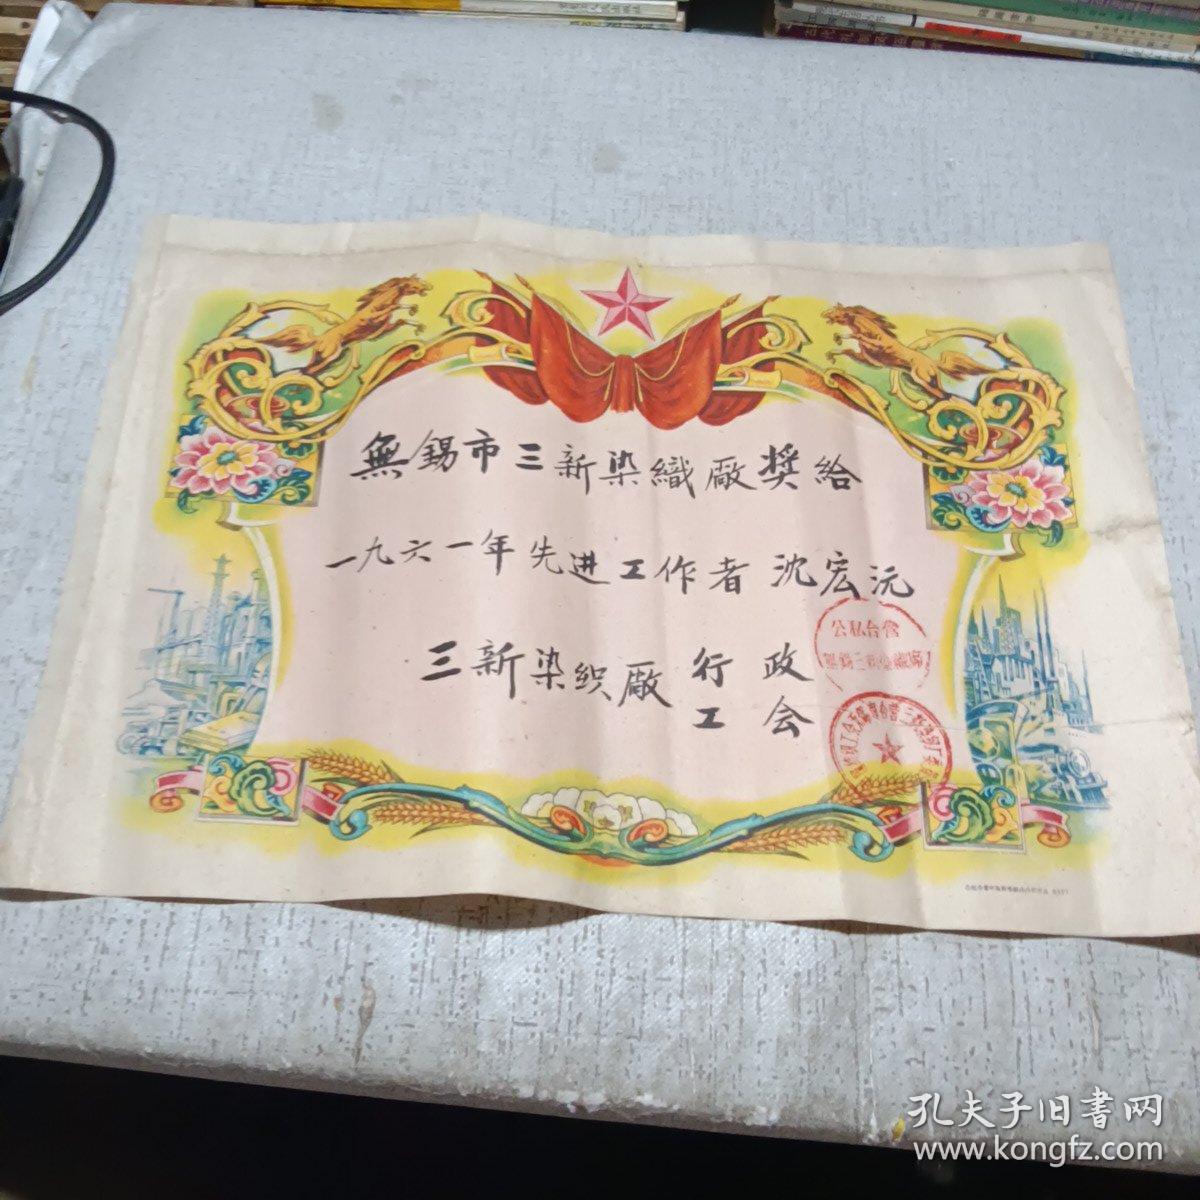 無錫市三新染織厰奖给
一九六一年先进工作者 沈宏沅
三新染织厰 行政
工会
公私合营
孔夫子旧書网
www.kongfz.com